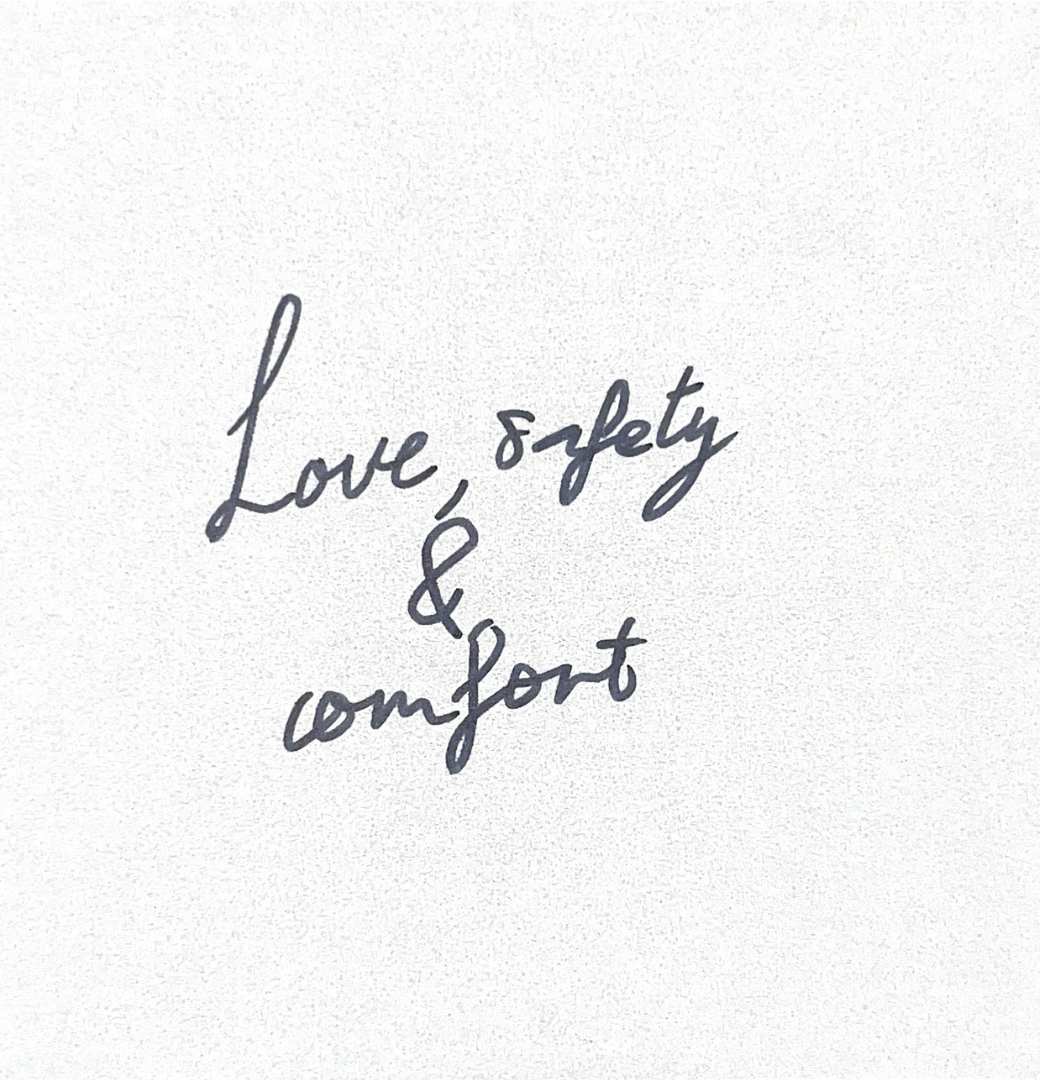 Love, safety
&
comfort